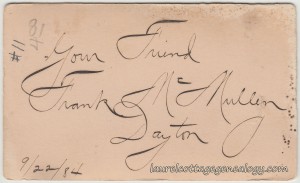 #11
81
4
Your Friend
Frank McMullen
Dayton
9/22/84
laurelcottagegenealogy.com